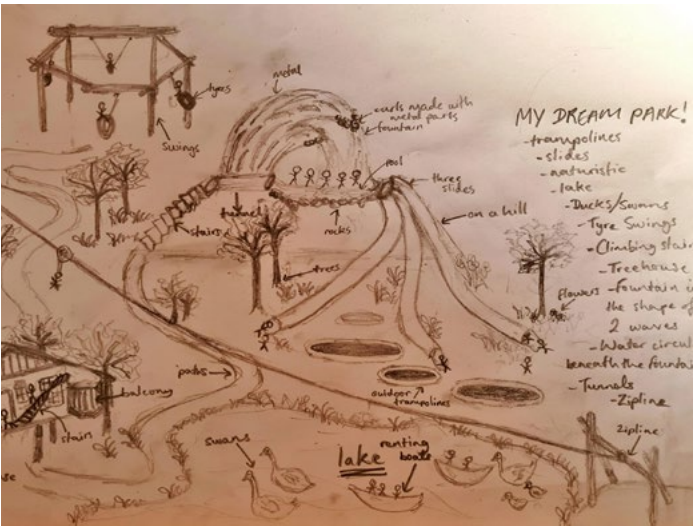 metal
tyres
curls made with
metal parts
fountain
swings
pool
three
slides
on a hill
stairs
tunnel
rocks
trees
flowers
paths
balcony
stair
outdoor
trampolines
swans
lake
renting
boats
zipline
se
MY DREAM PARK!
-trampolines
- slides
- naturistic
- lake
- Ducks/Swans
- Tyre Swings
- Climbing stair
- Treehouse
- fountain i
the shape of
2 waves
- Water circul
beneath the fountai
- Tunnels
- Zipline